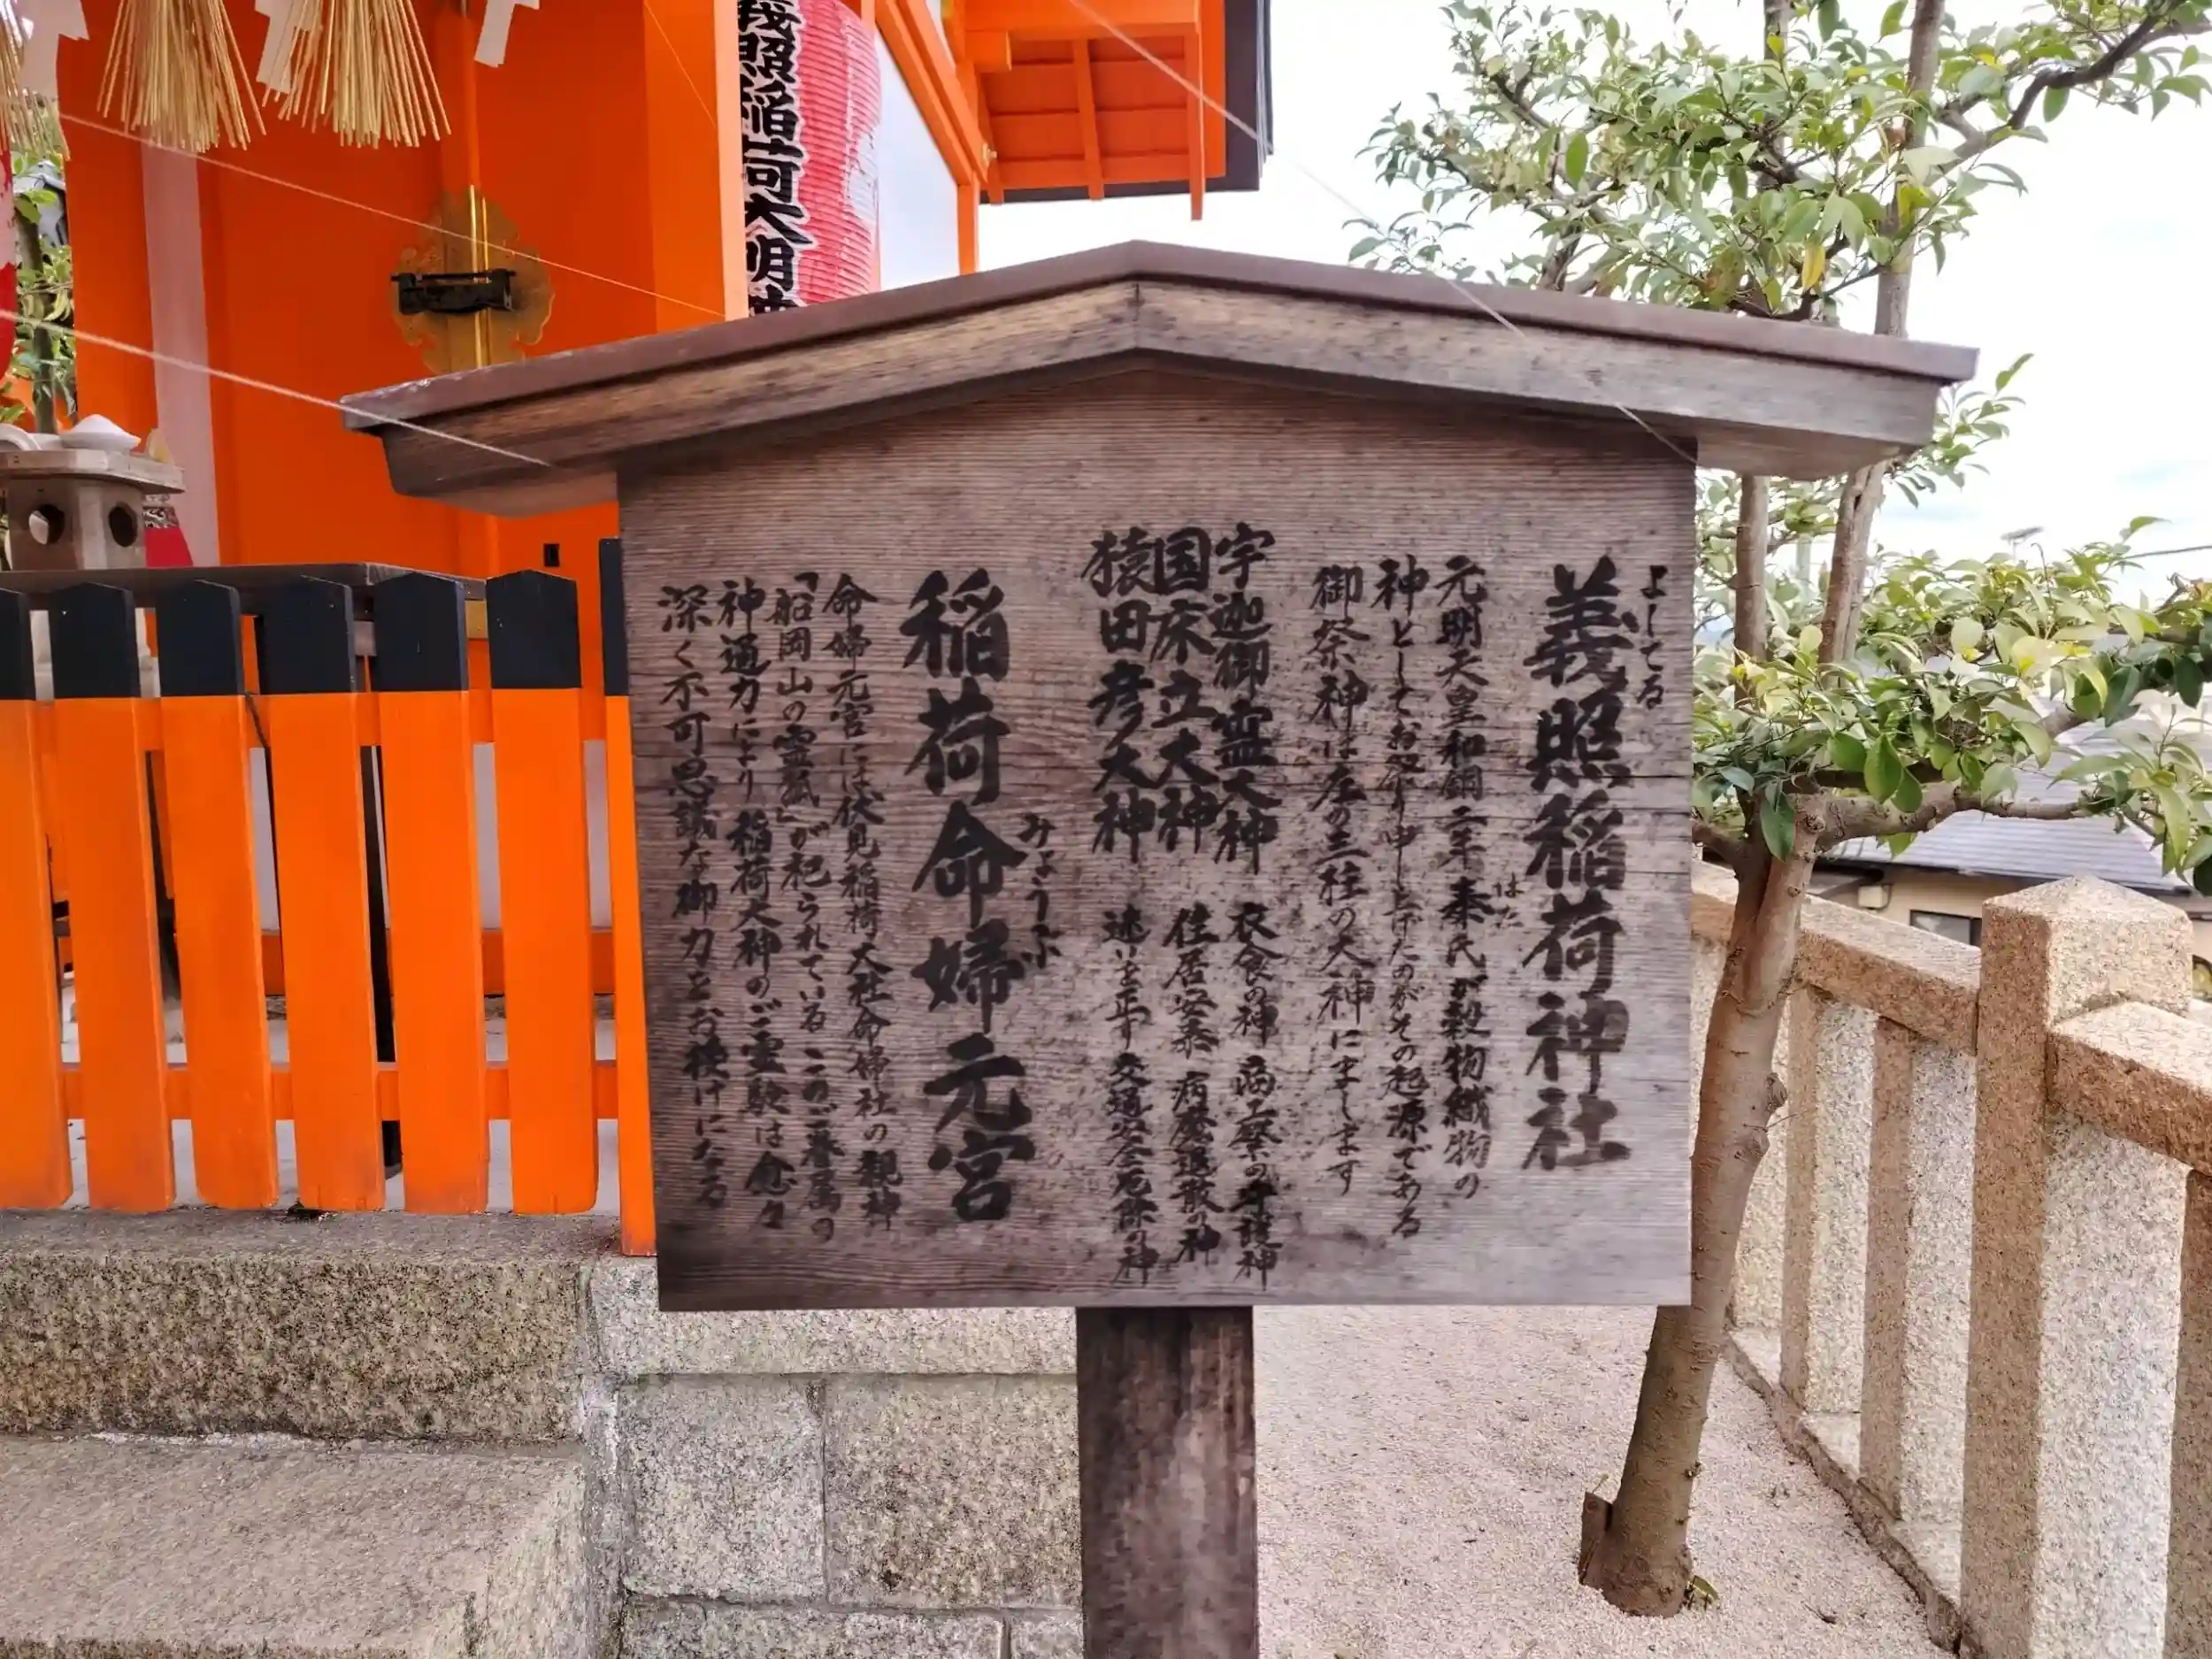 義照稲荷神社
よしてる
元明天皇和銅二年秦氏が穀物織物の
はた
神としてお祭り申し上げたのがその起源である
御祭神は左の三柱の大神にまします
宇迦御霊大神 衣食の神 商工業の守護神
国床立大神 住居安泰 病魔退散の神
猿田彦大神 迷いを正す 交通安全厄除の神
稲荷命婦元宮
みょうぶ
命婦元宮には伏見稲荷大社命婦社の親神
「船岡山の霊狐」が祀られている このご眷属の
神通力により 稲荷大神のご霊験は愈々
深く不可思議な御力をお授けになる
義照稲荷大明神